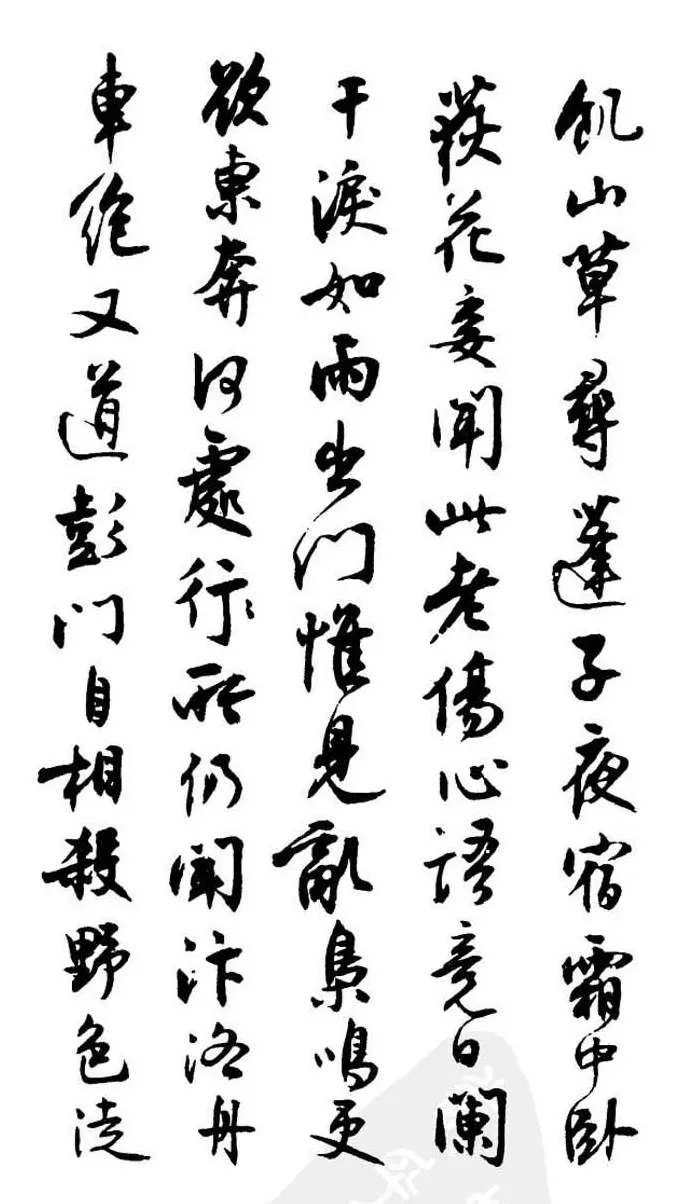 飢山草尋蓬子夜宿霜中卧
荻花妾聞此老傷心語竟日闌
干淚如雨出門惟見亂梟鳴更
欲東奔何處行所仍聞汴洛舟
車絶又道彭門自相殺野色徒